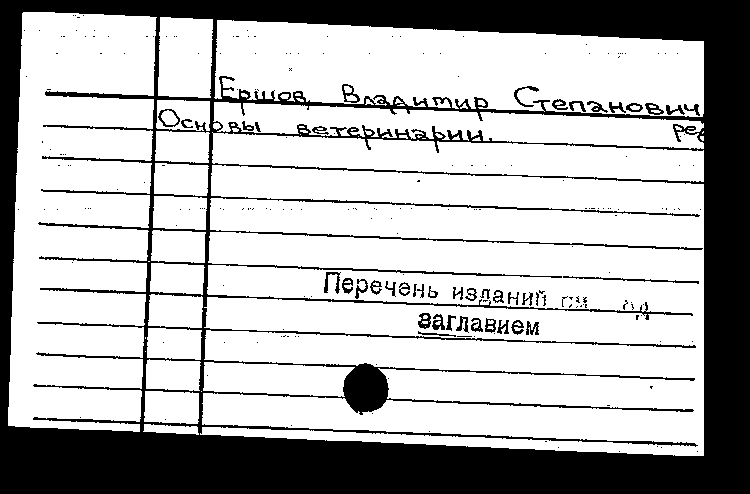 Ершов, Владимир Степанович,
Основы ветеринарии. ред
Перечень изданий см. под
заглавием